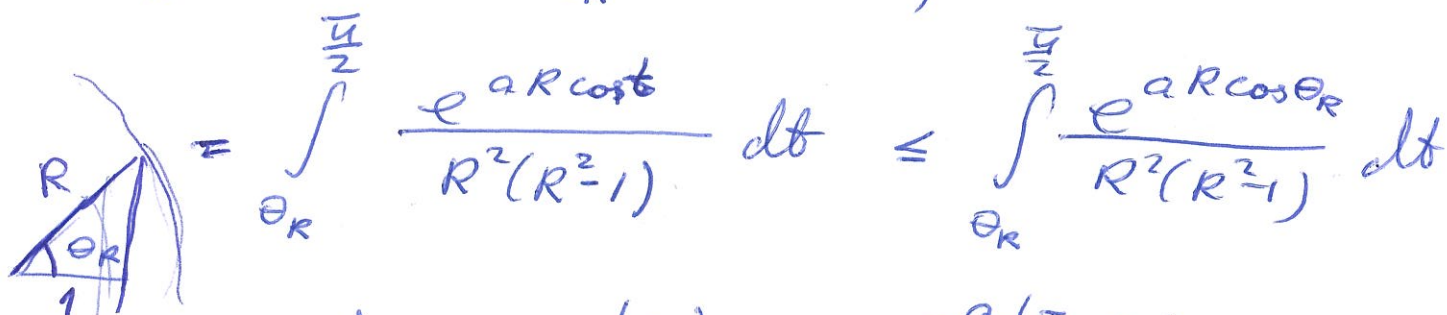 R θ_R 1
= ∫_{θ_R}^{π/2} \frac{e^{aR cos t}}{R^2(R^2-1)} dt ≤ ∫_{θ_R}^{π/2} \frac{e^{aR cos θ_R}}{R^2(R^2-1)} dt